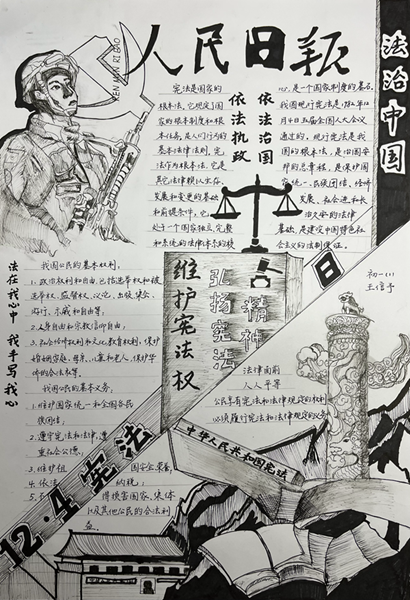 人民日报
REN MIN RI BAO
法治中国
宪法是国家的
根本法,它规定了国
家的根本制度和根
本任务,是人们行为的
基本法律法则。宪
法作为根本法,它是
其它法律赖以生存、
发展和变更的基础
和前提条件,它
处于一个国家独立、完整
和系统的法律体系的核
依法执政
依法治国
心,是一个国家制度的基石。
我国现行宪法是1982年12
月4日五届全国人大会议
通过的。现行宪法是我
国的根本法,是治国安
邦的总章程,是保护国
家统一、民族团结、经济
发展、社会进和长
治久安的法律
基础,是建设中国特色社
会主义的法制保证。
法在我心中 我手写我心
我国公民的基本权利:
1、政治权利和自由,包括选举权和被
选举权、监督权、议论、出版、集会、
游行、示威和自由等;
2、人身自由和宗教信仰自由;
护婚姻家庭、母亲、儿童和老人,保护华
侨的合法权等。
我国公民的基本义务:
1、维护国家统一和全国各民
族团结;
2、遵守宪法和法律,遵
重社会公德;
3、维护祖
国安全、荣誉
4、依法
纳税;
5、不
得损害国家、集体
以及其他公民的合法利
益。
维护宪法权
弘扬宪法
精神
日
初一(1)
王信予
法律面前
人人平等
公民享有宪法和法律规定的权利
必须履行宪法和法律规定的义务
中华人民共和国宪法
12·4宪法